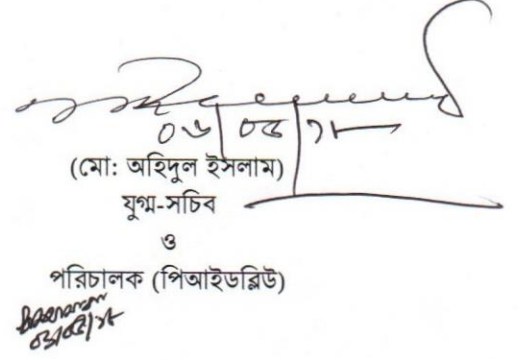 ০৬/০৫/১৮
(মো: অহিদুল ইসলাম)
যুগ্ম-সচিব
ও
পরিচালক (পিআইডব্লিউ)